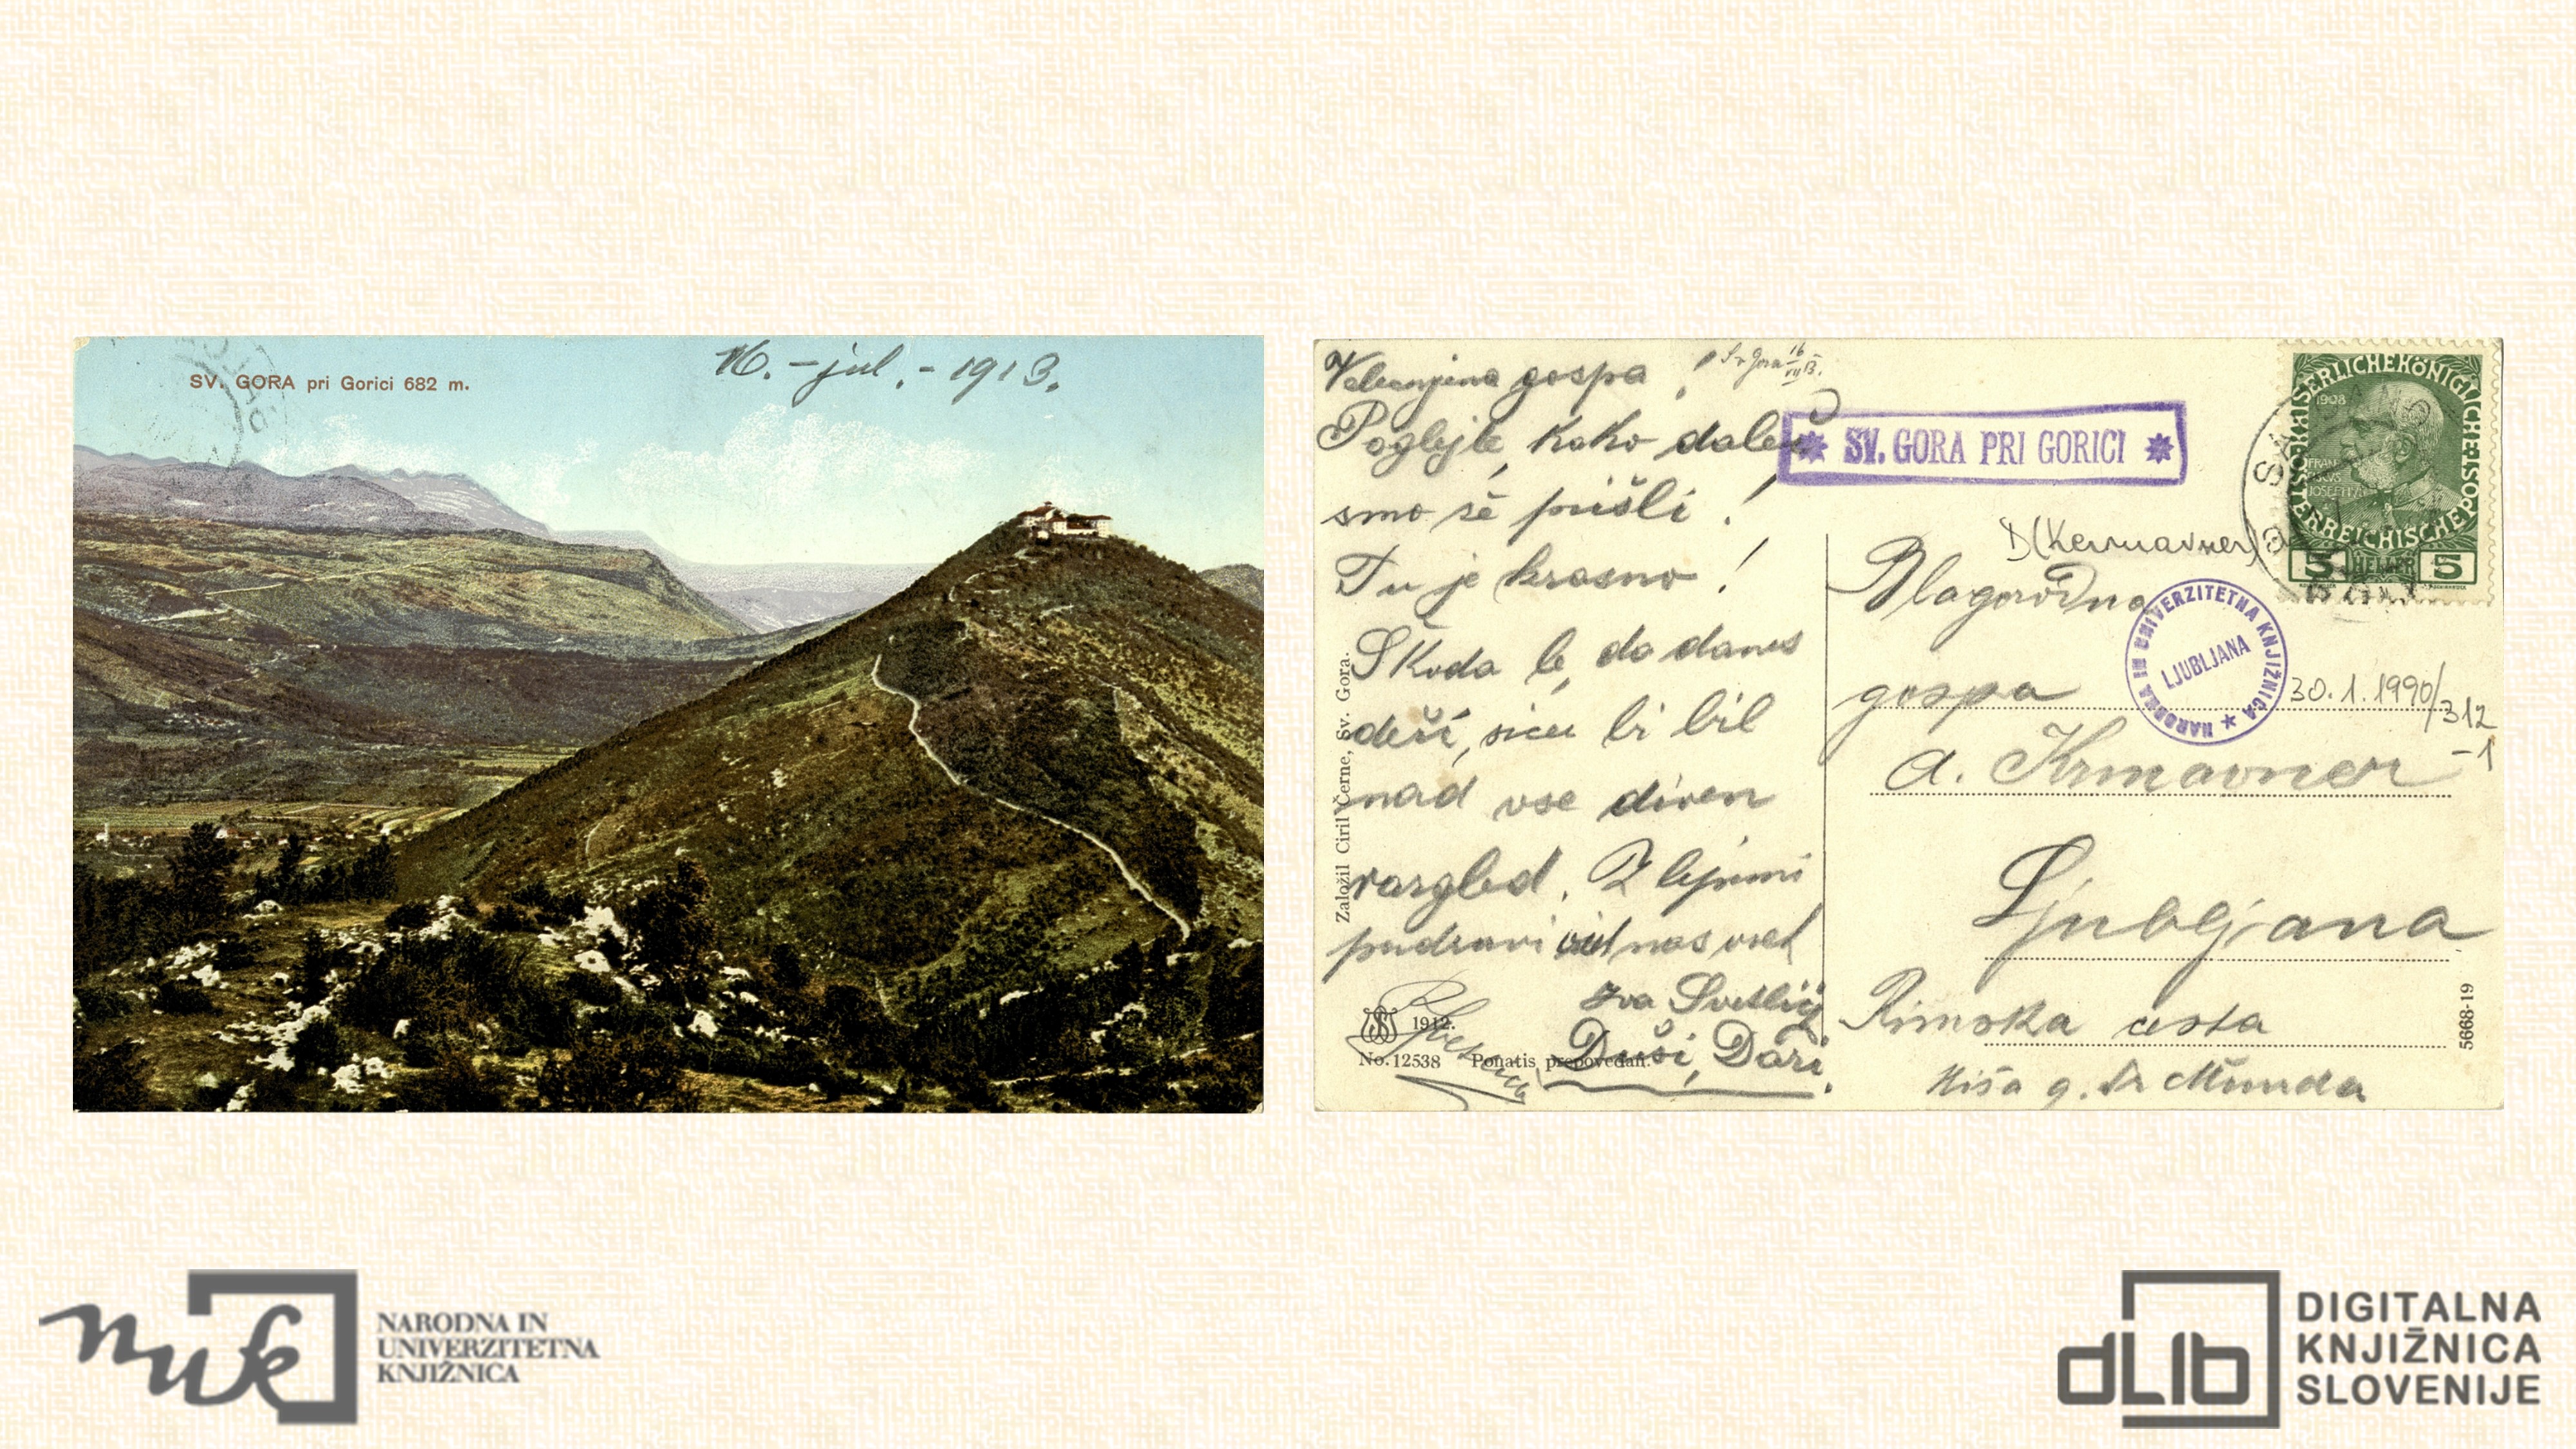 SV. GORA pri Gorici 682 m.
16. - jul. - 1913.
Velecenjena gospa!
Sv Gora 16/VII 13.
Poglejte, kako daleč
smo še prišli!
Tu je krasno!
Škoda le, da danes
deži, sicer bi bil
nad vse diven
razgled. Z lepimi
pozdravi od nas vseh
Iva Svetlič
Duši, Dari.
Založil Ciril Černe, Sv. Gora.
1912.
No. 12538 Ponatis prepovedan.
* SV. GORA PRI GORICI *
KAISERLICHEKÖNIGLICHE ÖSTERREICHISCHE POST
1908
5 HELLER 5
D(Kermavner)
NARODNA IN UNIVERZITETNA KNJIŽNICA *
LJUBLJANA
30.1.1990/312
-1
Blagorodna
gospa
A. Krmavner
Ljubljana
Rimska cesta
Hiša g. Dr Munda
5668-19
nuk
NARODNA IN
UNIVERZITETNA
KNJIŽNICA
dLib
DIGITALNA
KNJIŽNICA
SLOVENIJE